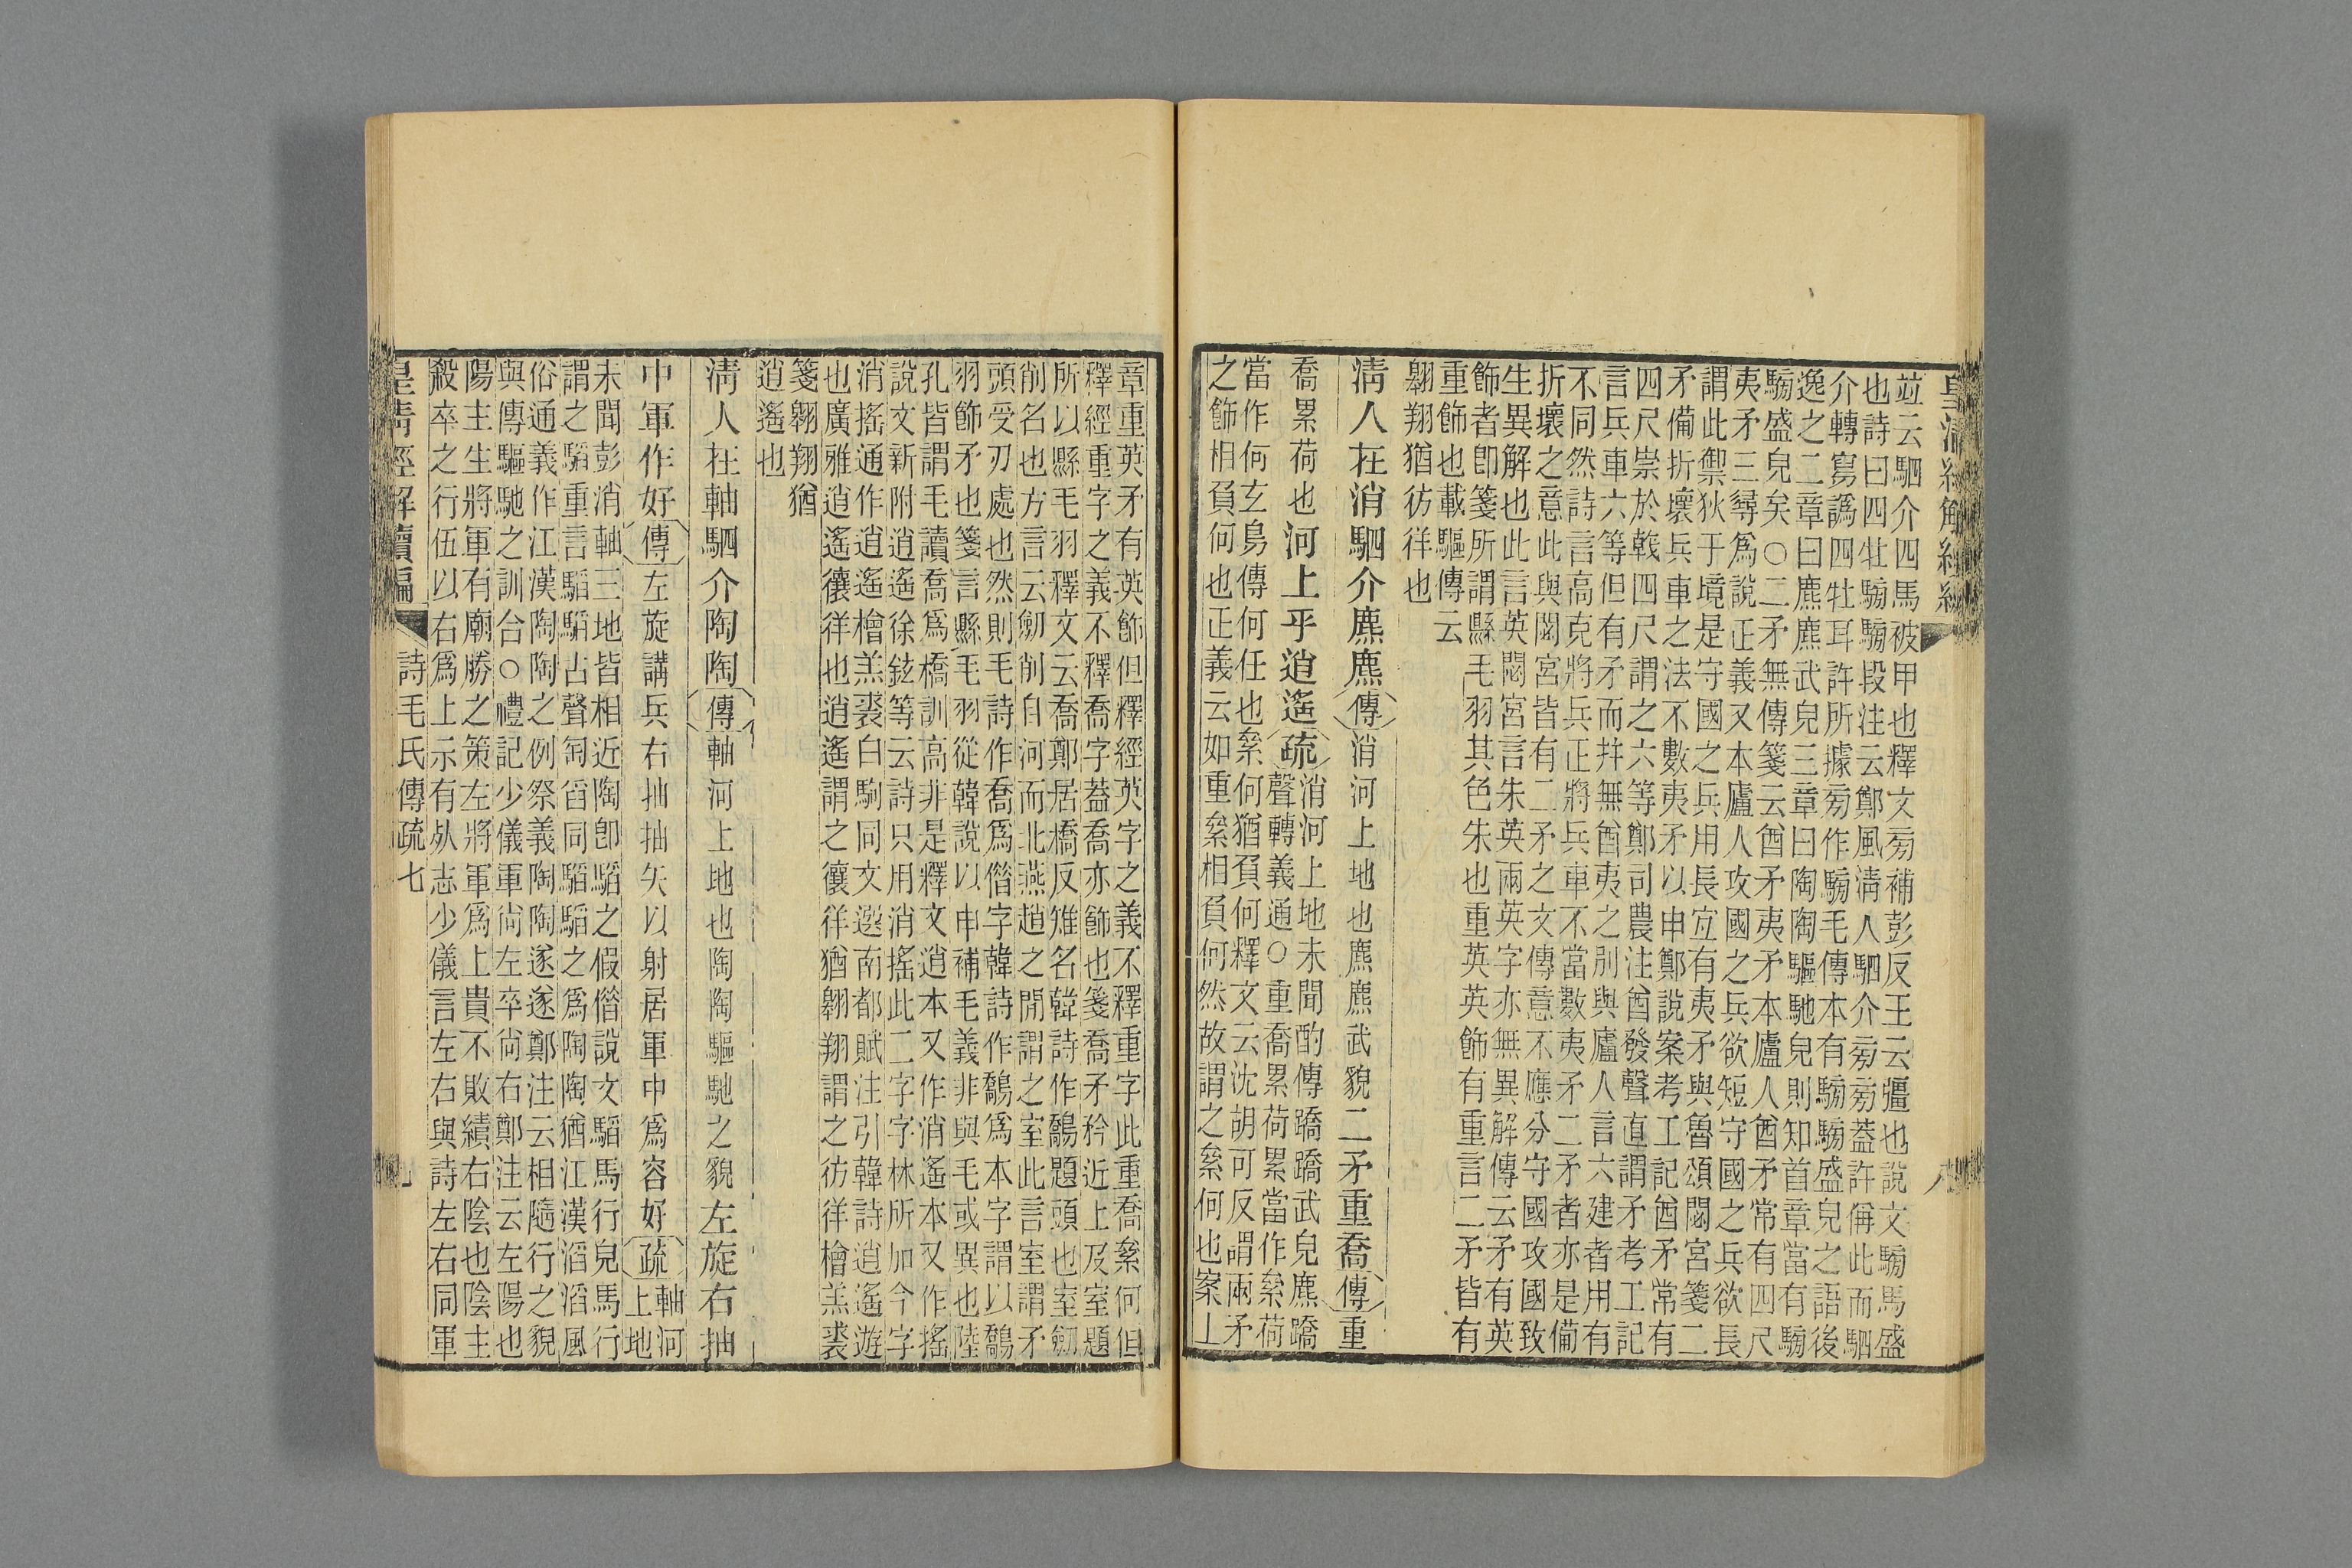 皇清經解續編
八
竝云駟介四馬被甲也釋文旁補彭反王云彊也說文騯馬盛
也詩曰四牡騯騯段注云鄭風清人駟介旁旁蓋許偁此而駟
介轉寫譌四牡耳許所據旁作騯毛傳本有騯騯盛皃之語後
逸之二章曰麃麃武皃三章曰陶陶驅馳皃則知首章當有騯
騯盛皃矣○二矛無傳箋云酋矛夷矛本廬人酋矛常有四尺
夷矛三尋爲說正義又本廬人攻國之兵欲短守國之兵欲長
謂此禦狄于境是守國之兵用長宜有夷矛與魯頌閟宮箋二
矛備折壞兵車之法不數夷矛以申鄭說案考工記酋矛常有
四尺崇於戟四尺謂之六等鄭司農注酋發聲直謂矛考工記
言兵車六等但有矛而幷無酋夷之別與廬人言六建者用有
不同然詩言高克將兵正將兵車不當數夷矛二矛者亦是備
折壞之意此與閟宮皆有二矛之文傳意不應分守國攻國致
生異解也此言英閟宮言朱英兩英字亦無異解傳云矛有英
飾者卽箋所謂縣毛羽其色朱也重英英飾有重言二矛皆有
重飾也載驅傳云
翱翔猶彷徉也
清人在消駟介麃麃傳消河上地也麃麃武貌二矛重喬傳重
喬累荷也河上乎逍遙疏消河上地未聞酌傳蹻蹻武皃麃蹻
聲轉義通○重喬累荷累當作絫荷
當作何玄鳥傳何任也絫何猶負何釋文云沈胡可反謂兩矛
之飾相負何也正義云如重絫相負何然故謂之絫何也案上
章重英矛有英飾但釋經英字之義不釋重字此重喬絫何但
釋經重字之義不釋喬字葢喬亦飾也箋喬矛矜近上及室題
所以縣毛羽釋文云喬鄭居橋反雉名韓詩作鷮題頭也室劒
削名也方言云劒削自河而北燕趙之閒謂之室此言室謂矛
頭受刃處也然則毛詩作喬爲僭字韓詩作鷮爲本字謂以鷮
羽飾矛也箋言縣毛羽從韓說以申補毛義非與毛或異也陸
孔皆謂毛讀喬爲橋訓高非是釋文逍本又作消遙本又作搖
說文新附逍遙徐鉉等云詩只用消搖此二字字林所加今字
消搖通作逍遙檜羔裘白駒同文選南都賦注引韓詩逍遙遊
也廣雅逍遙儴徉也逍遙謂之儴徉猶翱翔謂之彷徉檜羔裘
箋翱翔猶
逍遙也
清人在軸駟介陶陶傳軸河上地也陶陶驅馳之貌左旋右抽
中軍作好傳左旋講兵右抽抽矢以射居軍中爲容好疏軸河
上地
未聞彭消軸三地皆相近陶卽騊之假僭說文騊馬行皃馬行
謂之騊重言騊騊古聲匋舀同騊騊之爲陶陶猶江漢滔滔風
俗通義作江漢陶陶之例祭義陶陶遂遂鄭注云相隨行之貌
與傳驅馳之訓合○禮記少儀軍尙左卒尙右鄭注云左陽也
陽主生將軍有廟勝之策左將軍爲上貴不敗績右陰也陰主
殺卒之行伍以右爲上示有死志少儀言左右與詩左右同軍
皇清經解續編
詩毛氏傳疏七
九